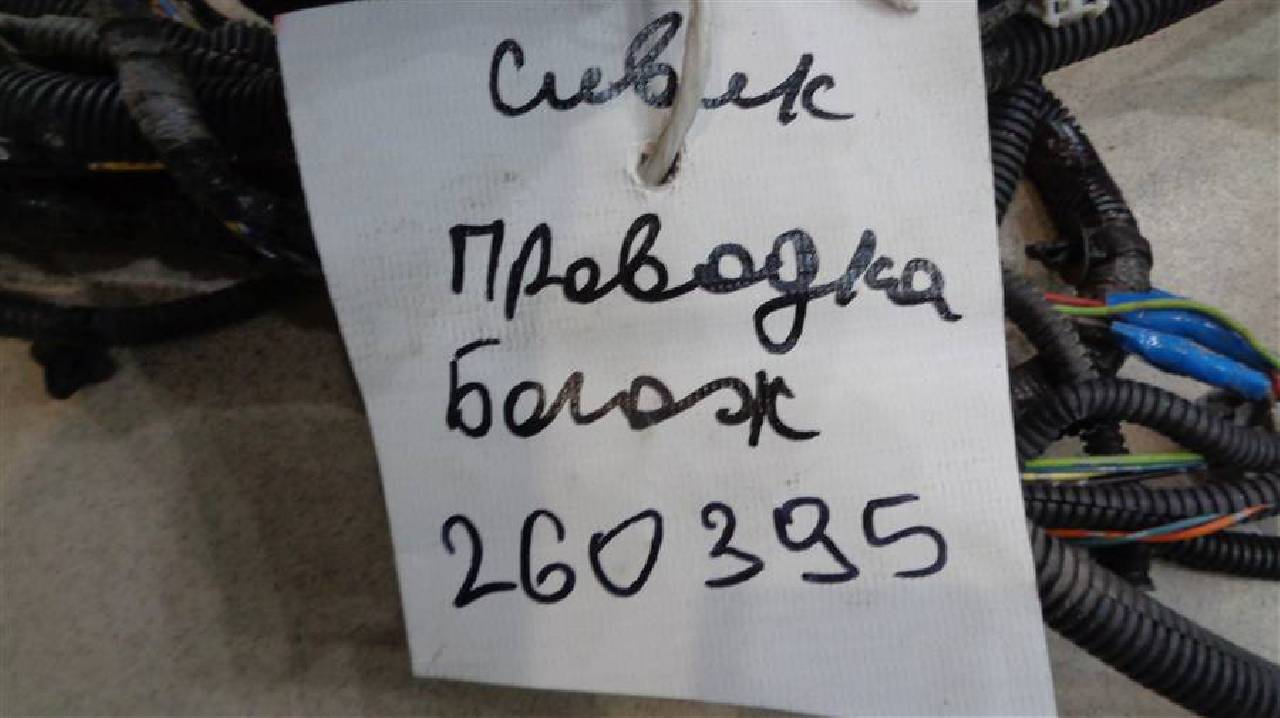 Сивик
Проводка
Богаж
260395